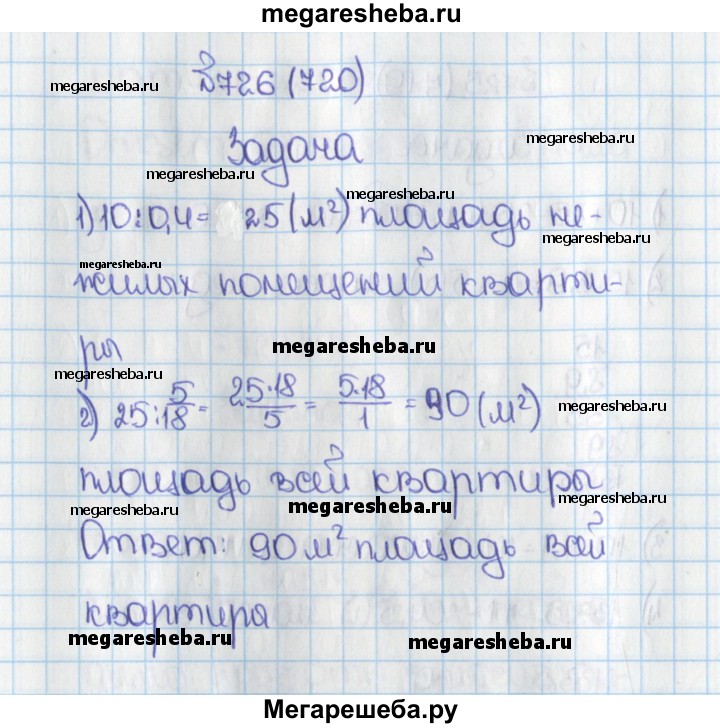 megaresheba.ru
№726 (720)
megaresheba.ru
megaresheba.ru
Задача
megaresheba.ru
megaresheba.ru
1) 10:0,4= 25 (м²) площадь не-
megaresheba.ru
megaresheba.ru
жилых помещений кварти-
ры
megaresheba.ru
megaresheba.ru
2) 25:5/18 = 25·18/5 = 5·18/1 = 90 (м²)
megaresheba.ru
площадь всей квартиры
megaresheba.ru
megaresheba.ru
megaresheba.ru
Ответ: 90 м² площадь всей
квартира
megaresheba.ru
megaresheba.ru
Мегарешеба.ру